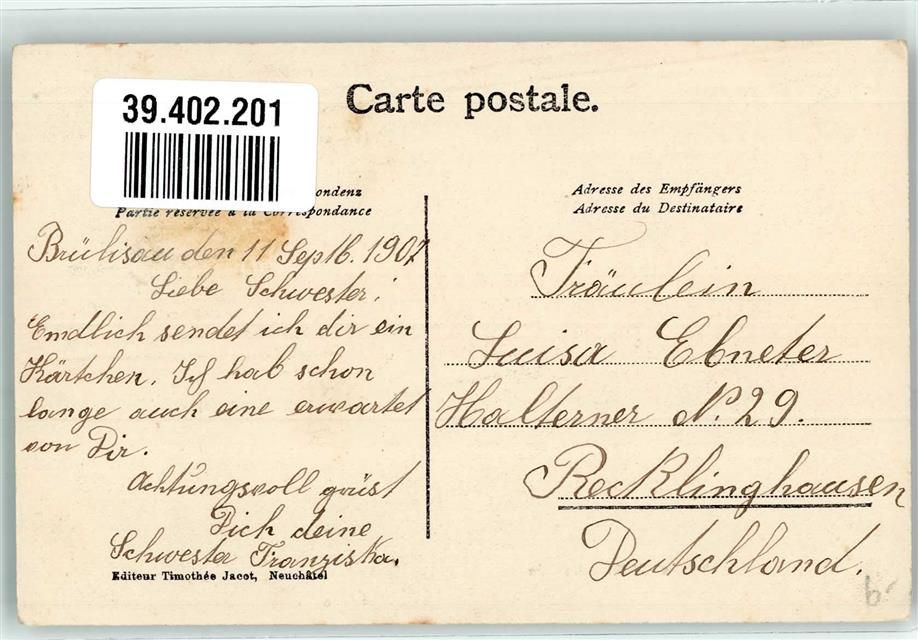 39.402.201
Carte postale.
ondenz
Partie réservée à la Correspondance
Adresse des Empfängers
Adresse du Destinataire
Brülisau den 11 Septb. 1907
Liebe Schwester!
Emdlich sendet ich dir ein
Kärtchen. Ich hab schon
lange auch eine erwartet
von Dir.
Achtungsvoll grüst
Dich deine
Schwester Franziska.
Editeur Timothée Jacot, Neuchâtel
Fräulein
Luisa Ebneter
Halterner No. 29.
Recklinghausen
Deutschland.
b